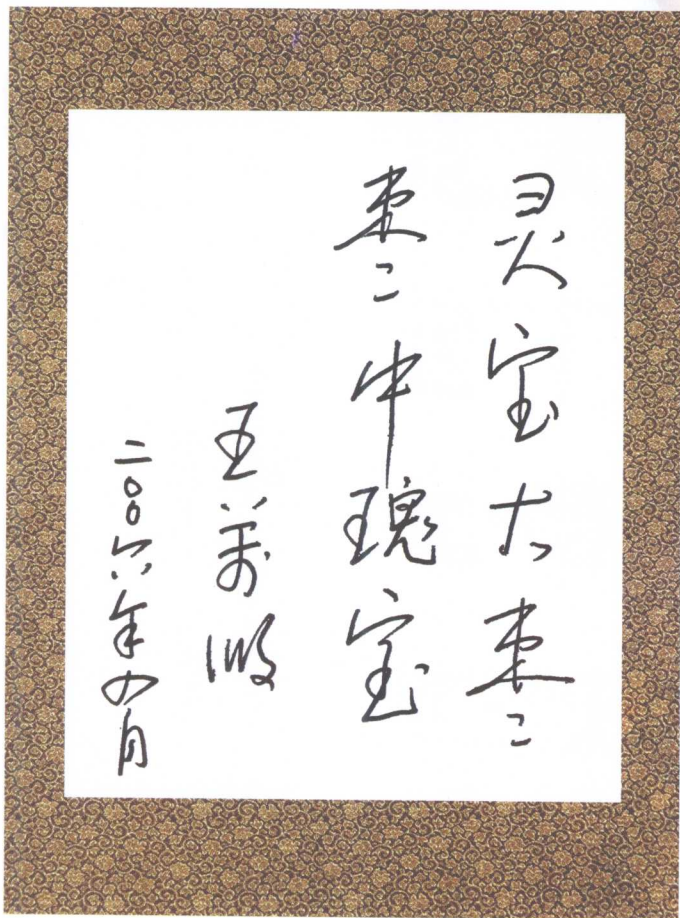 灵宝大枣
枣中瑰宝
王
二〇〇六年九月